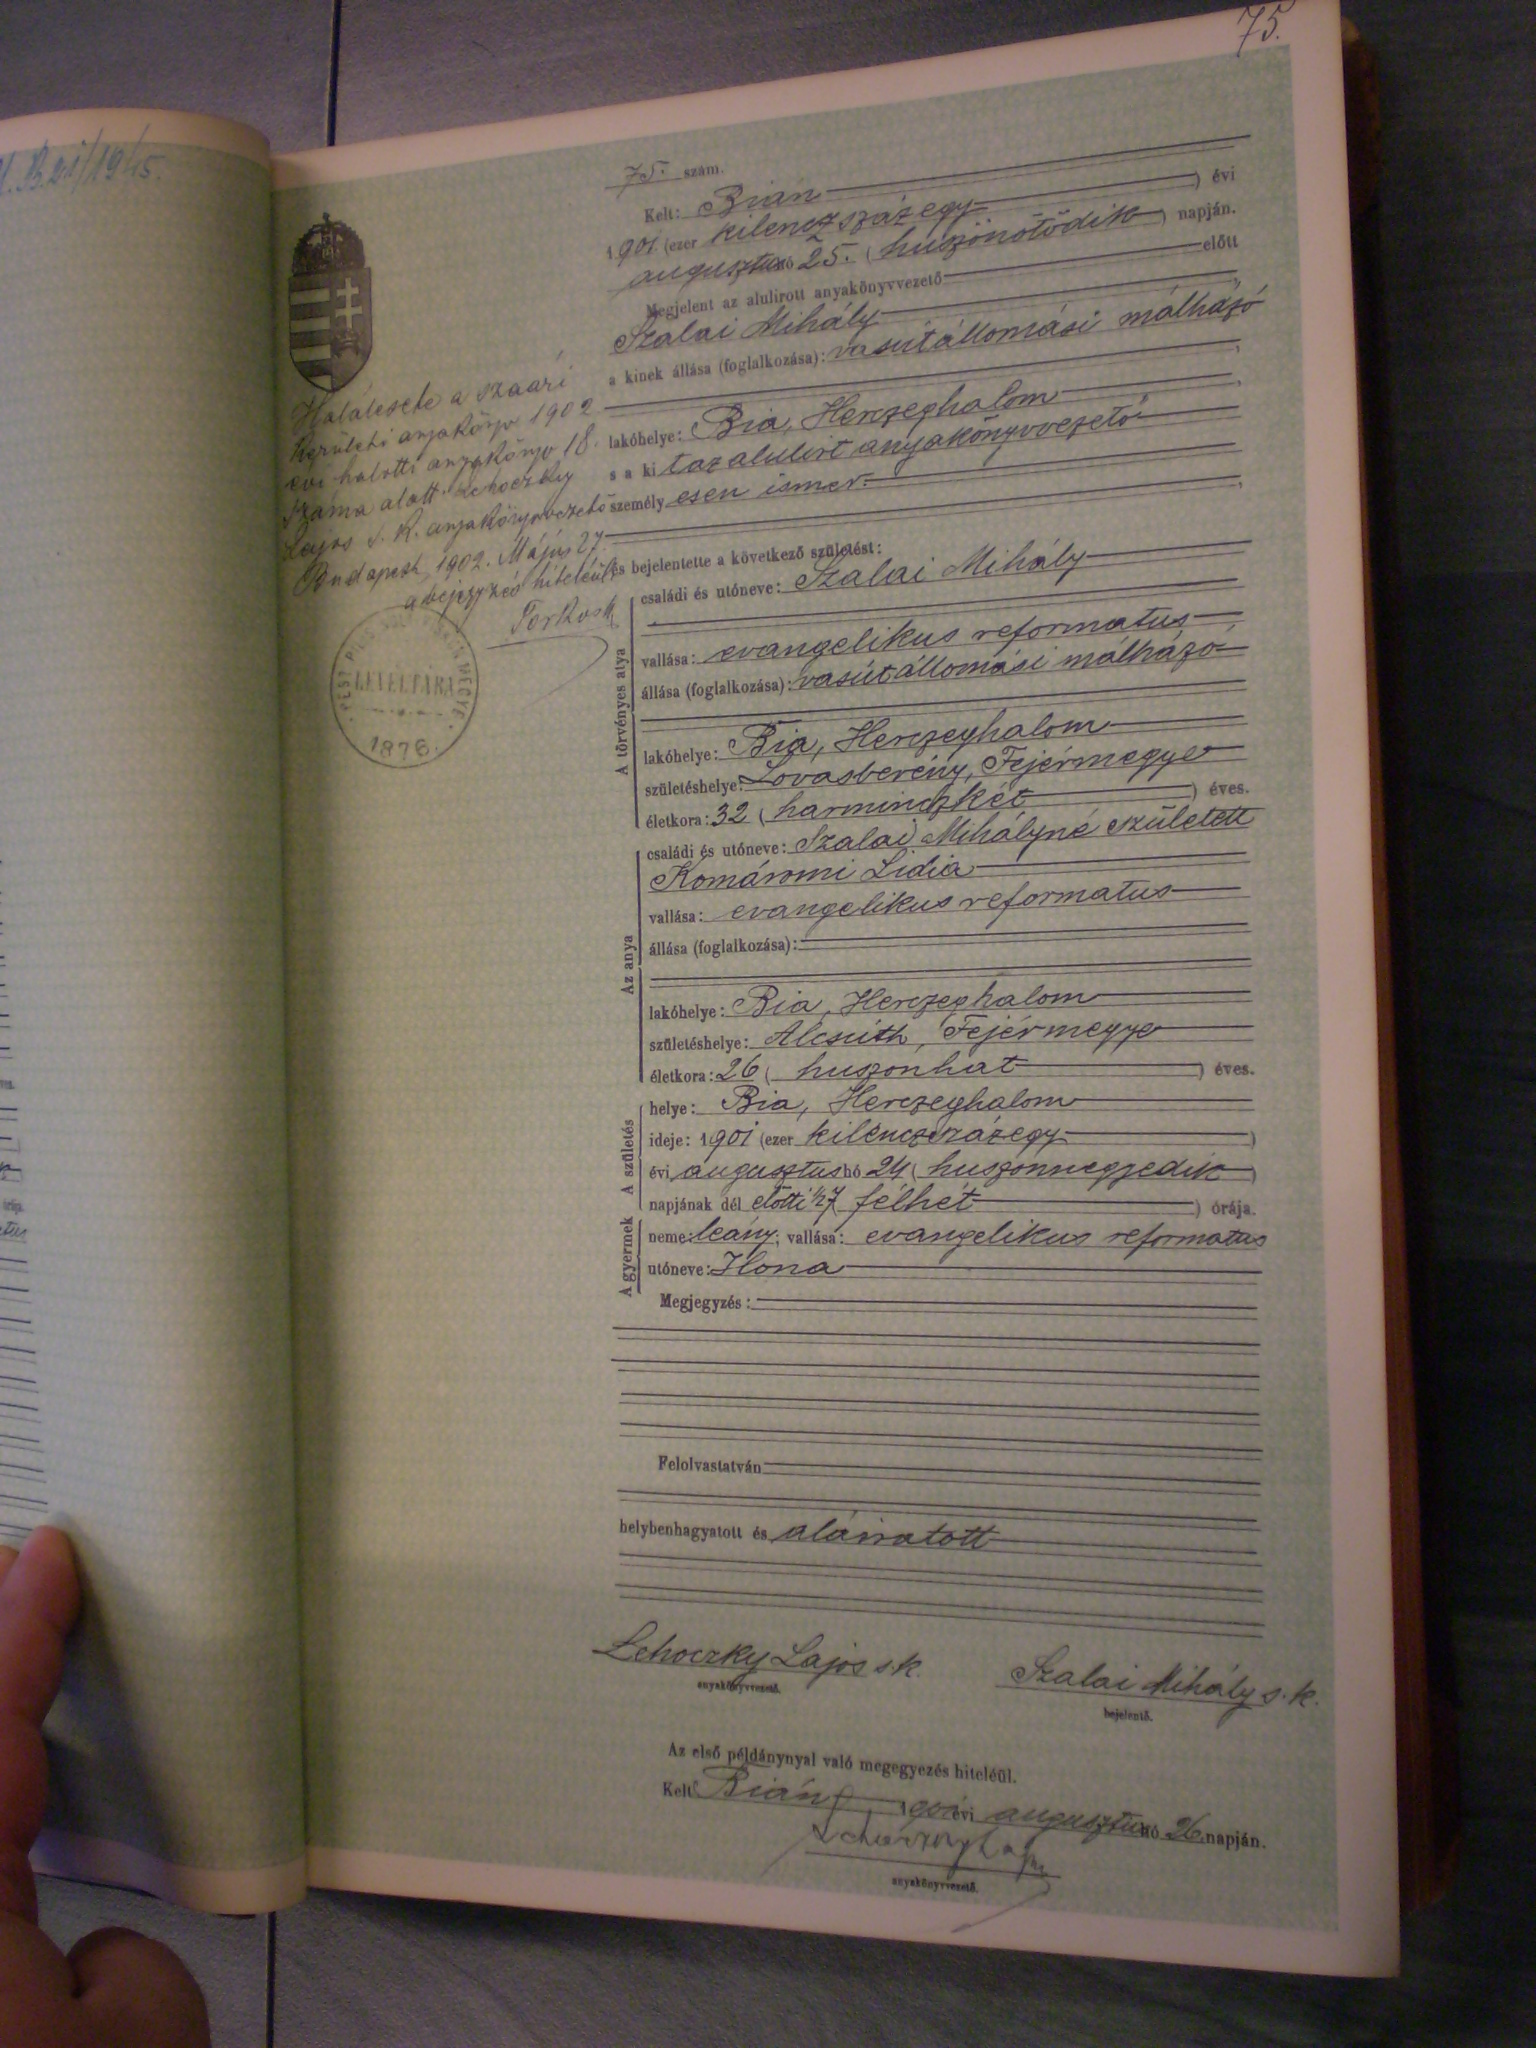 75.
75. szám.
Kelt: Bián
) évi
1901 (ezer kilenczszázegy
augusztus hó 25. (huszonötödik) napján.
Megjelent az alulirott anyakönyvvezető előtt
Szalai Mihály
a kinek állása (foglalkozása): vasútállomási málházó
lakóhelye: Bia, Herczeghalom
s a ki t az alulirt anyakönyvvezető
személyesen ismer.
és bejelentette a következő születést:
A törvényes atya
családi és utóneve: Szalai Mihály
vallása: evangelikus reformatus
állása (foglalkozása): vasútállomási málházó
lakóhelye: Bia, Herczeghalom
születéshelye: Lovasberény, Fejérmegye
életkora: 32 (harminczkét) éves.
Az anya
családi és utóneve: Szalai Mihályné született
Komáromi Lidia
vallása: evangelikus reformatus
állása (foglalkozása):
lakóhelye: Bia, Herczeghalom
születéshelye: Alcsúth, Fejérmegye
életkora: 26 (huszonhat) éves.
A születés
helye: Bia, Herczeghalom
ideje: 1901 (ezer kilenczszázegy)
évi augusztus hó 24 (huszonnegyedik)
napjának dél előtti 1/27 (félhét) órája.
A gyermek
neme: leány; vallása: evangelikus reformatus
utóneve: Ilona
Megjegyzés:
Felolvastatván
helybenhagyatott és aláiratott
Lehoczky Lajos s. k.
anyakönyvvezető.
Szalai Mihály s. k.
bejelentő.
Az első példánynyal való megegyezés hiteléül.
Kelt Bián, 1901 évi augusztus hó 26 napján.
Lehoczky Lajos
anyakönyvvezető.
Halálesete a szaári
kerületi anyakönyv 1902
évi halotti anyakönyv 18.
száma alatt Lehoczky
Lajos s. k. anyakönyvvezető
Budapest, 1902. Május 27
a bejegyzés hiteléül
LEVÉLTÁRA
1876.